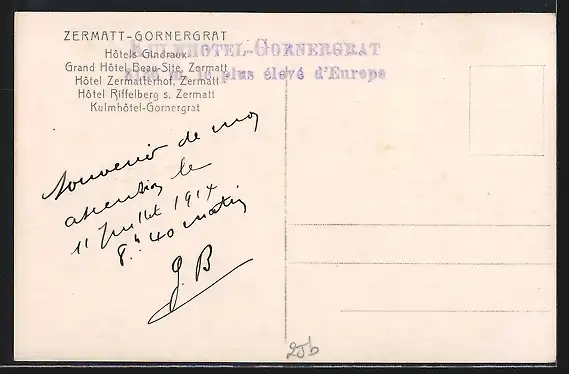 ZERMATT-GORNERGRAT
Hôtels Gindraux
Grand Hôtel Beau-Site, Zermatt
Hôtel Zermatterhof, Zermatt
Hôtel Riffelberg s. Zermatt
Kulmhôtel-Gornergrat
KULMHÔTEL-GORNERGRAT
le plus élevé d'Europe
Souvenir de mon
ascension le
11 Juillet 1914
8.h 40 matin
J. B
25b